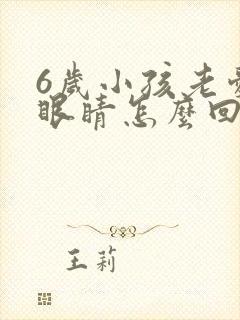 6歲小孩老
眼睛怎麼回
王莉